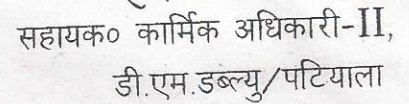 सहायक० कार्मिक अधिकारी-II,
डी.एम.डब्ल्यु/पटियाला